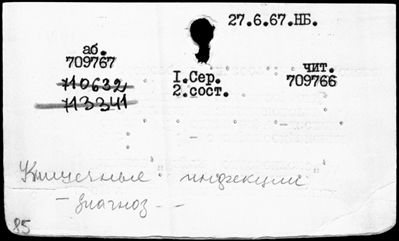 27.6.67.НБ.
аб.
709767
710632
713341
I.Сер.
2.сост.
чит.
709766
Кишечные инфекции
- диагноз -
85